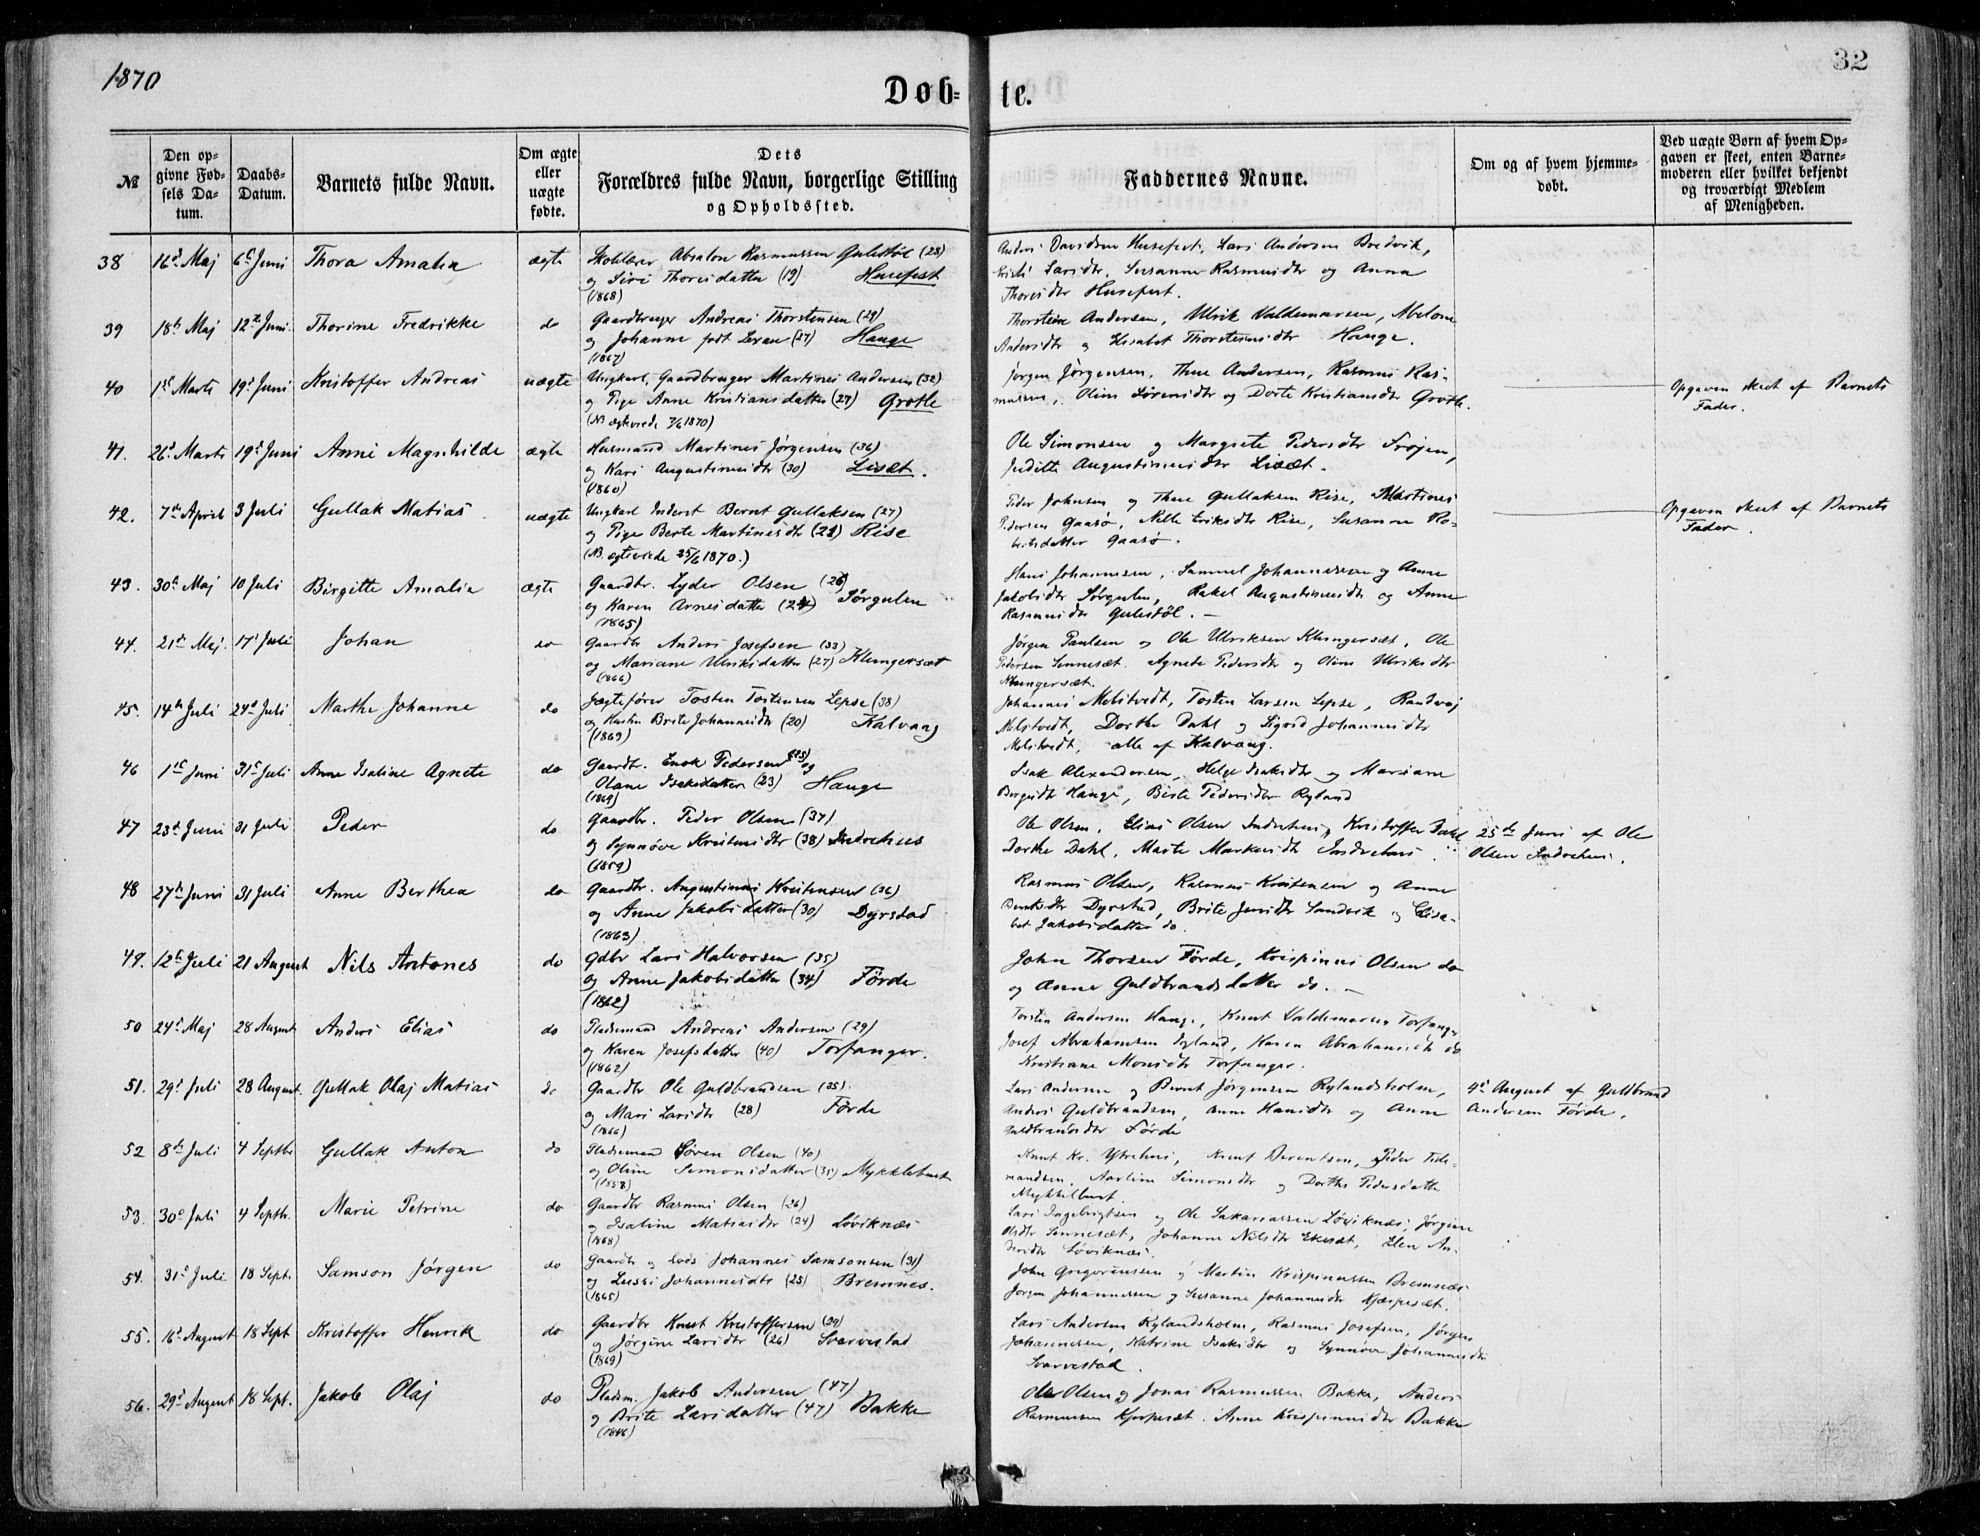 1870
32
Døb-te.
№
Den opgivne Fødsels Datum.
Daabs-Datum.
Barnets fulde Navn.
Om ægte eller uægte fødte.
Dets Forældres fulde Navn, borgerlige Stilling og Opholdssted.
Faddernes Navne.
Om og af hvem hjemmedøbt.
Ved uægte Børn af hvem Opgaven er skeet, enten Barnemoderen eller hvilket bekjendt og troværdigt Medlem af Menigheden.
38 16d Maj 6te Juni Thora Amalia ægte Absalon Rasmussen Gulestøl (28)
og Siri Thoresdatter (19) Husefest
(1868)
Anders Davidsen Husefest, Lars Andersen Bredvik,
Larsdtr, Susanne Rasmusdtr og Anna
Thoresdtr Husefest.
39 18de Maj 12te Juni Thorine Fredrikke do Gaardbruger Andreas Thorstensen (29)
og Johanne født (27) Hauge
(1867)
Thorsteine Andersen, Ulrik Valdemarsen, Abelone
Andersdtr og Elisabet Thorsteinsdtr Hauge.
40 1ste Marts 19d Juni Kristoffer Andreas uægte Ungkarl, Gaardbruger Martines Andersen (32)
og Pige Anne Kristiansdatter (27) Grotle
(NB ægteviede 7/6 1870)
Jørgen Jørgensen, Thue Andersen, Rasmus Ras-
mussen, Oline Sørensdtr og Dorte Kristiansdtr Grotle.
Opgaven skeet af Barnets
Fader.
41. 26d Marts 19d Juni Anne Magnhilde ægte Husmand Martines Jørgensen (36)
og Kari Augustinusdtr (30) Lisæt.
(1860)
Ole Simonsen og Margrete Pedersdtr Frøjen,
Judithe Augustinusdtr Lisæt.
42. 7de April 3 Juli Gullak Matias uægte Ungkarl Inderst Bernt Gullaksen (27)
og Pige Berte Martinesdtr (21) Rise
(NB. ægteviede 25/6 1870.)
Peder Johnsen og Thue Gullaksen Rise, Martines
Pedersen Gaasø, Nille Eriksdtr Rise, Susanne Ro-
bertsdatter Gaasø.
Opgaven skeet af Barnets
Fader.
43. 30te Maj 10 Juli Birgitte Amalia ægte Gaardbr. Lyder Olsen (26)
og Karen Arnesdatter (24) Sørgulen
(1865)
Hans Johannessen, Samuel Johannessen og Anne
Jakobsdtr Sørgulen, Rakel Augustinusdtr og Anne
Rasmusdtr Gulestøl. —
44. 21de Maj. 17d Juli Johan do Gaardbr Anders Josefsen (33)
og Mariane Ulriksdatter (27) Klungersæt
(1866)
Jørgen Paulsen og Ole Ulriksen Klungersæt, Ole
Pedersen Sennesæt. Agnete Pedersdtr og Oline Ulriksdtr
Klungersæt.
45. 14de Juli 24d Juli Marthe Johanne do Jægtefører Tosten Tostensen Lepse (38)
og Hustru Brite Johannesdtr (20) Kalvaag
(1869)
Johannes Melstvedt, Tosten Larsen Lepse, Randvaj
Melstvedt, Dorthe Dahl og Sigrid Johannesdtr
Melstvedt, alle af Kalvaag.
46 1ste Juni 31te Juli Anne Isaline Agnete do Gaardbr. Enok Pedersen (25) og
Olane Isaksdatter (23) Hauge
(1869)
Isak Alexandersen, Helge Isaksdtr og Mariane
Hauge, Birte Pedersdtr Ryland
47 23d Juni 31 Juli Peder do Gaardbr. Peder Olsen (37)
og Synnøve Kristensdtr (38) Indrehus
(1859)
Ole Olsen, Elias Olsen Indrehus, Kristoffer Dahl
Dorthe Dahl, Marte Markusdtr Indrehus.
25de Juni af Ole
Olsen Indrehus.
48 27de Juni 31 Juli Anne Berthea do Gaardbr. Augustinus Kristensen (36)
og Anne Jakobsdatter (30) Dyrstad
(1863)
Rasmus Olsen, Rasmus Kristensen og Anne
Berntsdtr Dyrstad, Brite Jensdtr Sandvik og Elisa-
bet Jakobsdatter do.
49. 12te Juli 21 August Nils Antones do Gdbr Lars Halvorsen (35)
og Anne Jakobsdatter (34) Førde
(1862)
John Thorsen Førde, Krispinus Olsen do
og Anne Guldbrandsdatter do. —
50 24d Maj 28 August Anders Elias do Pladsemand Andreas Andersen (29)
og Karen Josefsdatter (40) Torfanger.
(1862)
Torsten Andersen Hauge, Knut Valdemarsen Torfanger
Josef Abrahamsen Ryland, Karen Abrahamsdtr do
Kristiane Monsdtr Torfanger.
51. 29d Juli 28 August. Gullak Olaj Matias do Gaardbr Ole Guldbrandsen (35).
og Mari Larsdtr (28) Førde
(1866)
Lars Andersen og Bernt Jørgensen Rylandsholm,
Anders Guldbrandsen, Anne Hansdtr og Anne
Guldbrandsdtr Førde
4de August af Guldbrand
Andersen Førde.
52 8de Juli 4 Septbr Gullak Anton do Pladsemand Søren Olsen (40)
og Oline Simonsdatter (35) Myklebust
(1858)
Knut Kr. Ytrehus, Knut Berentsen, Peder Tide-
mandsen, Simonsdtr og Dorthe Pedersdatter
Myklebust.
53. 30te Juli 4 Septbr. Marie Petrine do Gaardbr Rasmus Olsen (26)
og Isaline Matiasdtr (24) Løviknæs
(1868)
Lars Ingebrigtsen og Ole Sakariassen Løviknæs, Jørgine
Olsdtr Sennesæt, Johanne Nilsdtr Ekesæt, Elen An-
dersdtr Løviknæs.
54. 31te Juli 18 Sept. Samson Jørgen do Gaardbr og Johannes Samsonsen (31)
og Lussi Johannesdtr (25) Bremnes.
(1865)
John Gregoriussen og Martin Krispinussen Bremnæs
Jørgen Johannessen og Susanne Johannesdtr
55. 16d August 18 Sept Kristoffer Henrik do Gaardbr Knut Kristoffersen (29)
og Jørgine Larsdtr (26) Svarvestad
(1869)
Lars Andersen Rylandsholm, Rasmus Josefsen, Jørgen
Johannessen, Katrine Isaksdtr og Synnøve Johannesdtr
Svarvestad.
56. 29d August 18 Sept. Jakob Olaj do Pladsm. Jakob Andersen (47)
og Brite Larsdatter (47) Bakke
(1846)
Ole Olsen og Jonas Rasmussen Bakke, Anders
Rasmussen, Anne Krispinusdtr Bakke